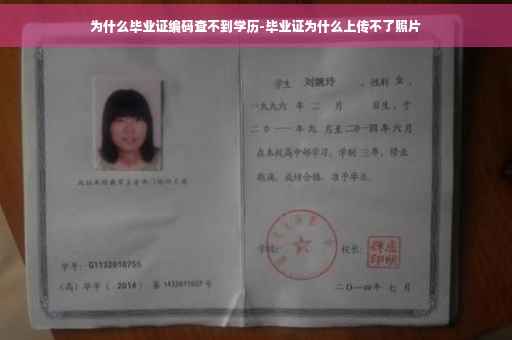 为什么毕业证编码查不到学历-毕业证为什么上传不了照片
学生 刘婉玲 ，性别 女 ，
一九九六 年 二 月 日生，于
二〇一一 年 九 月至 二〇一四 年 六 月
在本校高中部学习，学制 三 年，修业
期满，成绩合格，准予毕业。
学校： 校长：
学号： G1132010755
（高）毕字（ 2014 ）第 1432011607 号
二〇一四年 七 月